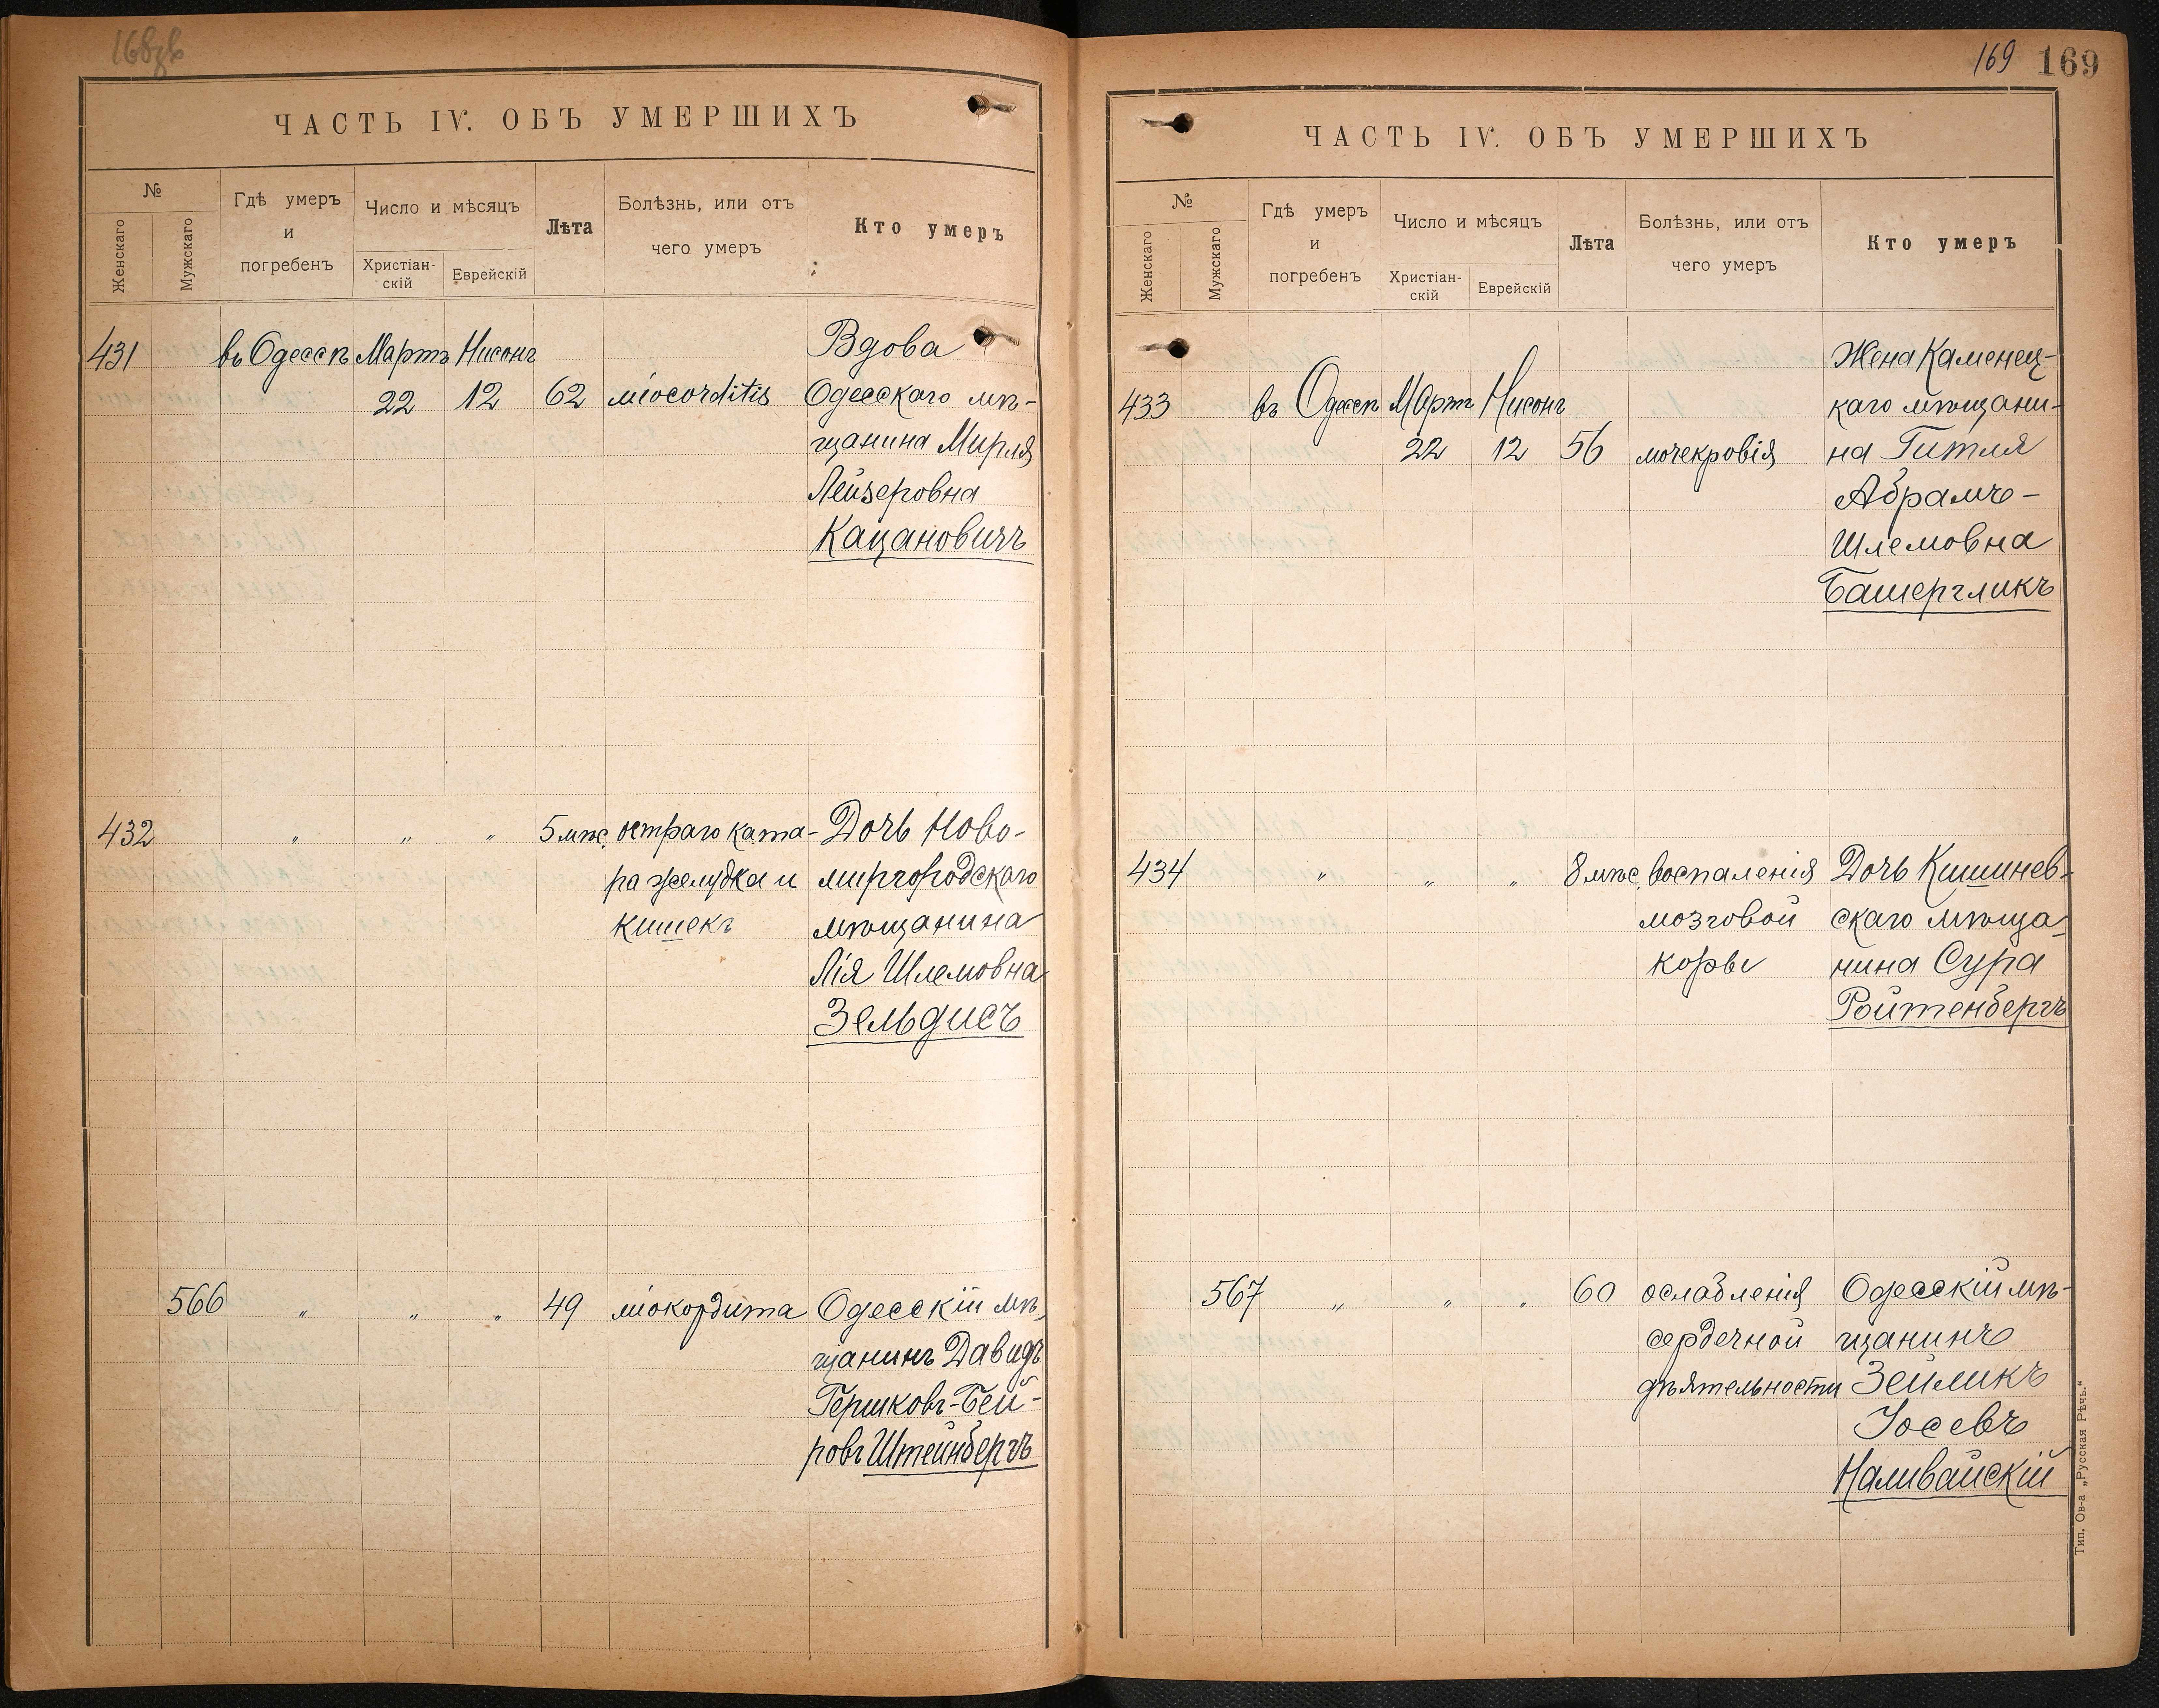 168об
ЧАСТЬ IV. ОБЪ УМЕРШИХЪ
№
Женскаго
Мужскаго
Гдѣ умеръ
и
погребенъ
Число и мѣсяцъ
Христіан-
скій
Еврейскій
Лѣта
Болѣзнь, или отъ
чего умеръ
Кто умеръ
431 въ Одессѣ Мартъ Нисонъ Вдова
22 12 62 miocorditis Одесскаго мѣ-
щанина Мирля
Лейзеровна
Кацановичъ
432 " " " 5 мѣс. остраго ката- Дочь Ново-
ра желудка и миргородскаго
кишекъ мѣщанина
Лія Шлемовна
Зельдисъ
566 " " " 49 міокордита Одесскій мѣ-
щанинъ Давидъ
Гершковъ-Бей-
ровъ Штейнбергъ
169 169
ЧАСТЬ IV. ОБЪ УМЕРШИХЪ
№
Женскаго
Мужскаго
Гдѣ умеръ
и
погребенъ
Число и мѣсяцъ
Христіан-
скій
Еврейскій
Лѣта
Болѣзнь, или отъ
чего умеръ
Кто умеръ
Жена Каменец-
433 въ Одессѣ Мартъ Нисонъ каго мѣщани-
22 12 56 мочекровія на Гитля
Абрамъ-
Шлемовна
Башергликъ
434 " " " 8 мѣс. воспаленія Дочь Кишинев-
мозговой скаго мѣща-
коры нина Сура
Ройтенбергъ
567 " " " 60 ослабленія Одесскій мѣ-
сердечной щанинъ
дѣятельности Зейликъ
Іосевъ
Наливайскій
Тип. Ов-а „Русская Рѣчь.“